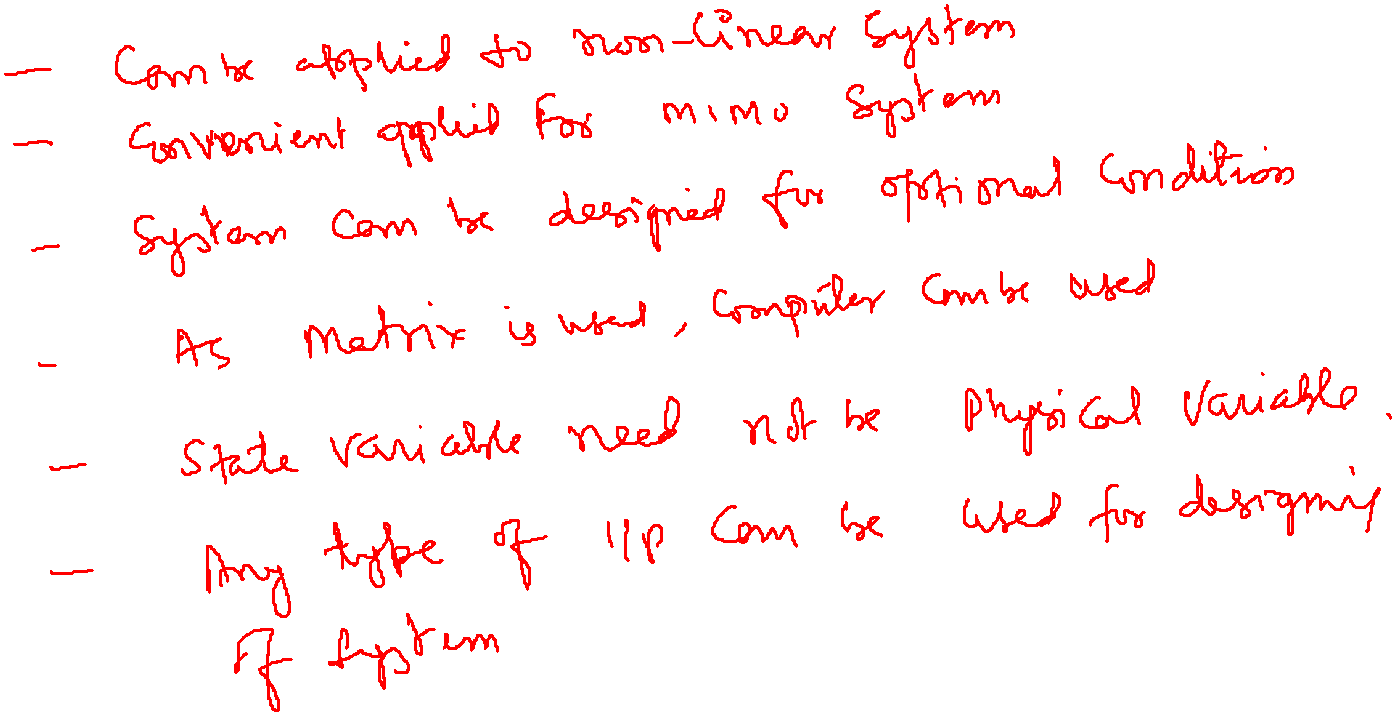 - Can be applied to non-linear system
- Convenient applied for MIMO system
- System can be designed for optional condition
- As matrix is used, computer can be used
- State variable need not be physical variable.
- Any type of i/p can be used for designing
of system